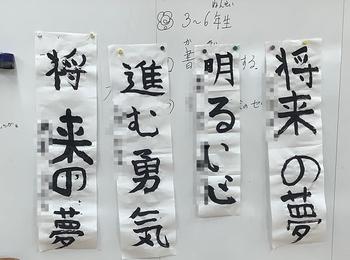 3~6年生
書
する
将来の夢
明るい心
進む勇気
将来の夢